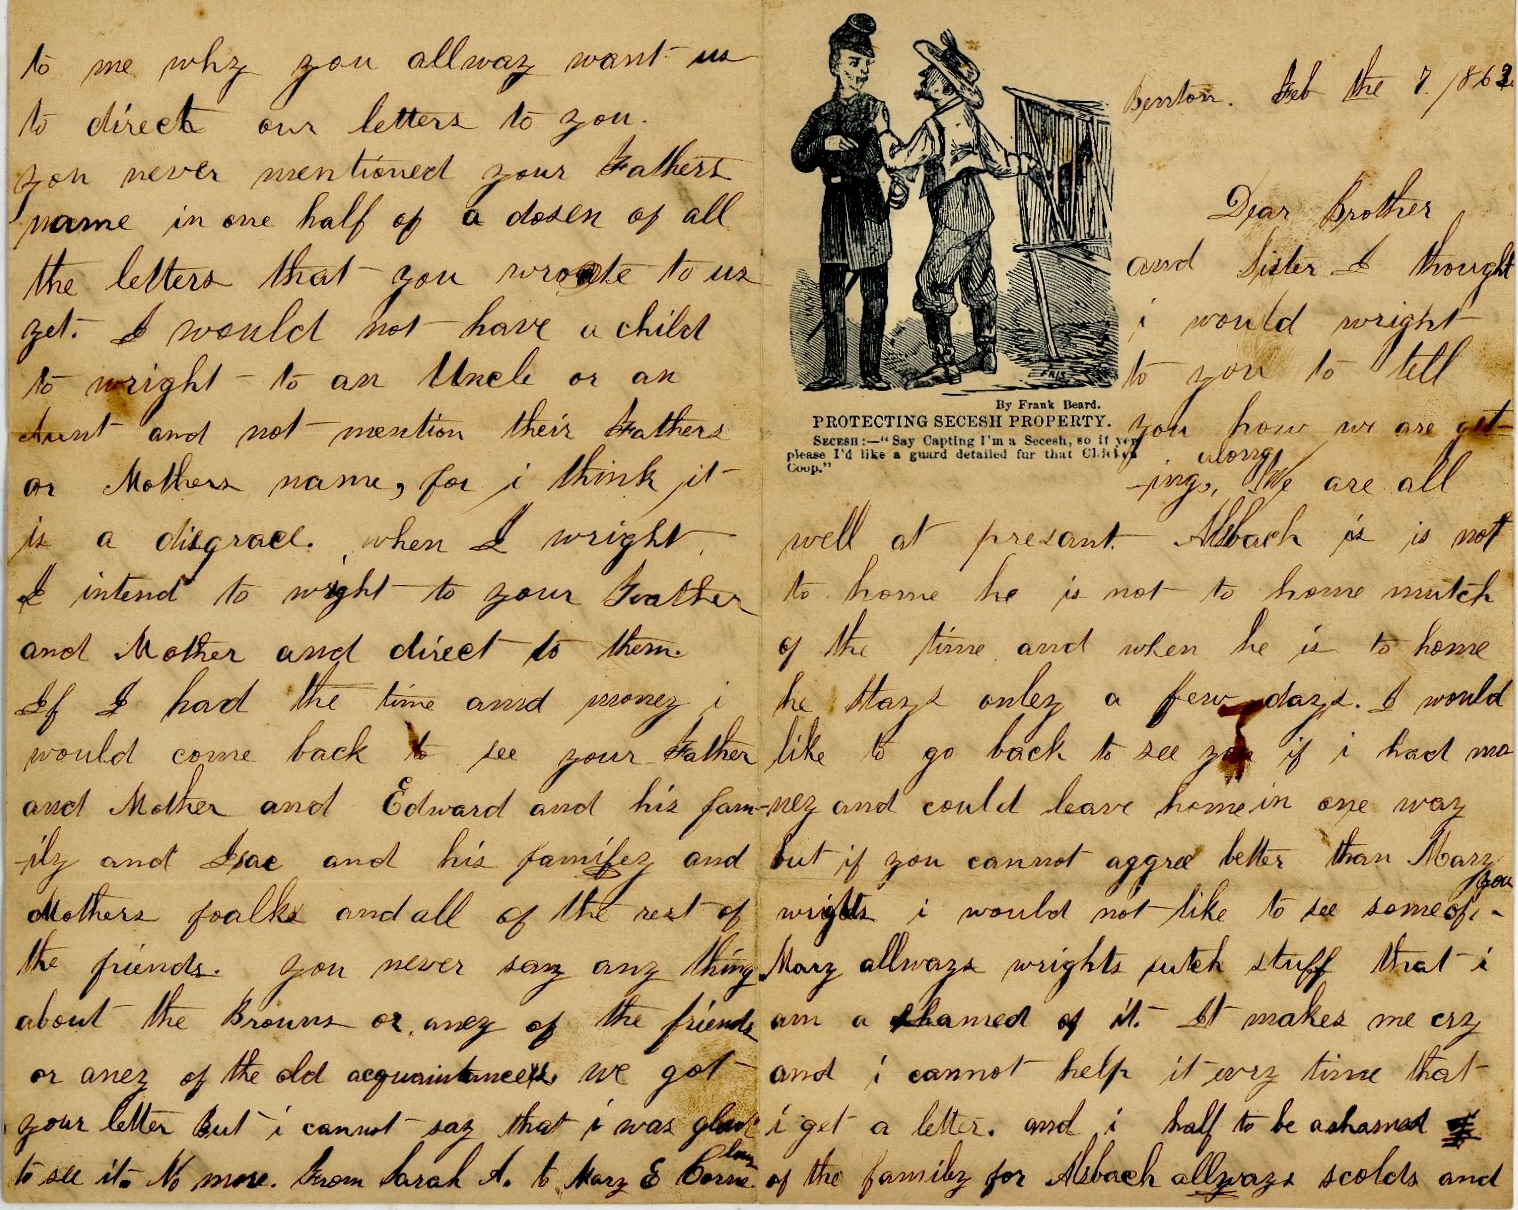 Benton. Feb the 7. 1862
Dear Brother
and Sister I thought
i would wright
to you to tell
you how we are get-
along
-ing. We are all
By Frank Beard.
PROTECTING SECESH PROPERTY.
SECESH:—"Say Capting I'm a Secesh, so if yer
please I'd like a guard detailed fur that Chicken
Coop."
well at presant. Alsbach is is not
to home he is not to home mutch
of the time and when he is to home
he stays onley a few days. I would
like to go back to see you if i had mo
-ney and could leave home in one way
but if you cannot aggree better than Mary
you
wrights i would not like to see some of
Mary allways wrights sutch stuff that i
am a shamed of it. It makes me cry
and i cannot help it evry time that
i get a letter. and i half to be ashamed
of the familey for Alsbach allways scolds and
to me why you allway want us
to direct our letters to you.
you never mentioned your Fathers
name in one half of a dosen of all
the letters that you wrote to us
yet. I would not have a child
to wright to an Uncle or an
Aunt and not mention their Fathers
or Mothers name, for i think it
is a disgrace. when I wright
I intend to wright to your Father
and Mother and direct to them.
If I had the time and money i
would come back to see your Father
and Mother and Edward and his fam-
-ily and Isac and his familey and
Mothers foalks and all of the rest of
the friends. you never say any thing
about the Browns or aney of the friends
or aney of the old acquaintances. we got
your letter But i cannot say that i was glad
to see it. No more. From Sarah A. to Mary E